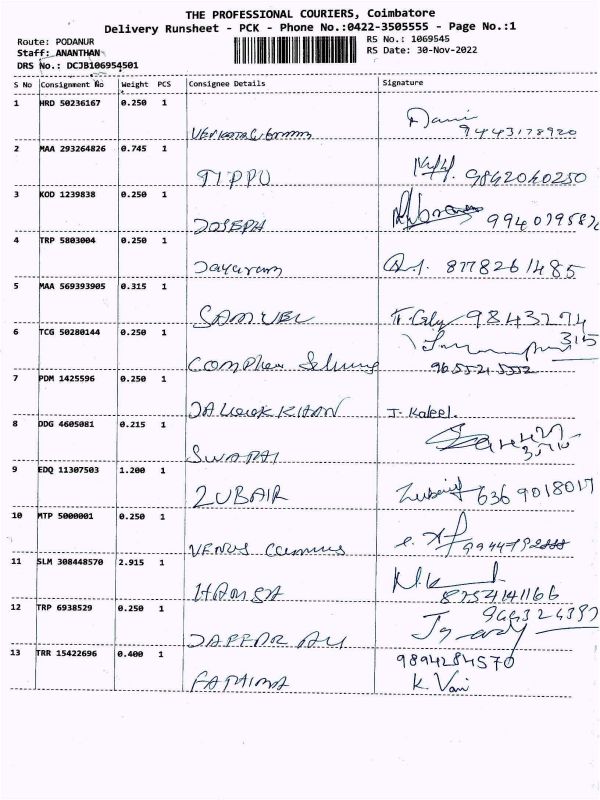 THE PROFESSIONAL COURIERS, Coimbatore
Delivery Runsheet - PCK - Phone No.:0422-3505555 - Page No.:1
Route: PODANUR RS No.: 1069545
Staff: ANANTHAN RS Date: 30-Nov-2022
DRS No.: DCJB106954501
S No Consignment No Weight PCS Consignee Details Signature
1 HRD 50236167 0.250 1
9443178920
2 MAA 293264826 0.745 1
TIPPU 9842040250
3 KOD 1239838 0.250 1
JOSEPH
4 TRP 5803004 0.250 1
Jayaram 8778261485
5 MAA 569393905 0.315 1
SAMUEL 9843274
315
6 TCG 50280144 0.250 1
7 PDM 1425596 0.250 1
KHAN J. Kaleel.
8 DDG 4605081 0.215 1
9 EDQ 11307503 1.200 1
ZUBAIR Zubair 6369018017
10 MTP 5000001 0.250 1
VENUS
11 SLM 308448570 2.915 1
HAMSA 8754141166
12 TRP 6938529 0.250 1
JAFFAR ALI
13 TRR 15422696 0.400 1
9894284570
FATHIMA K. Vani